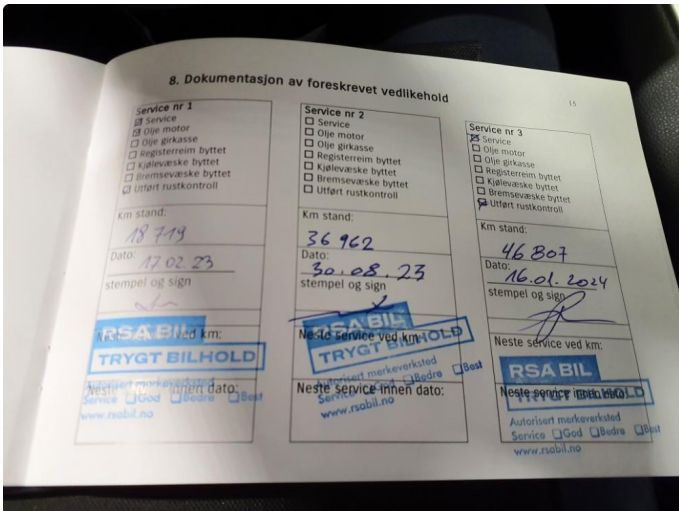 8. Dokumentasjon av foreskrevet vedlikehold
15
Service nr 1
Service
Olje motor
Olje girkasse
Registerreim byttet
Kjølevæske byttet
Bremsevæske byttet
Utført rustkontroll
Km stand:
18 719
Dato:
17.02.23
stempel og sign
Neste service ved km:
RSA BIL
TRYGT BILHOLD
Neste service innen dato:
Autorisert merkeverksted
Service God Bedre Best
www.rsabil.no
Service nr 2
Service
Olje motor
Olje girkasse
Registerreim byttet
Kjølevæske byttet
Bremsevæske byttet
Utført rustkontroll
Km stand:
36 962
Dato:
30.08.23
stempel og sign
Neste service ved km:
RSA BIL
TRYGT BILHOLD
Neste service innen dato:
Autorisert merkeverksted
Service God Bedre Best
www.rsabil.no
Service nr 3
Service
Olje motor
Olje girkasse
Registerreim byttet
Kjølevæske byttet
Bremsevæske byttet
Utført rustkontroll
Km stand:
46 807
Dato:
16.01.2024
stempel og sign
Neste service ved km:
RSA BIL
TRYGT BILHOLD
Neste service innen dato:
Autorisert merkeverksted
Service God Bedre Best
www.rsabil.no